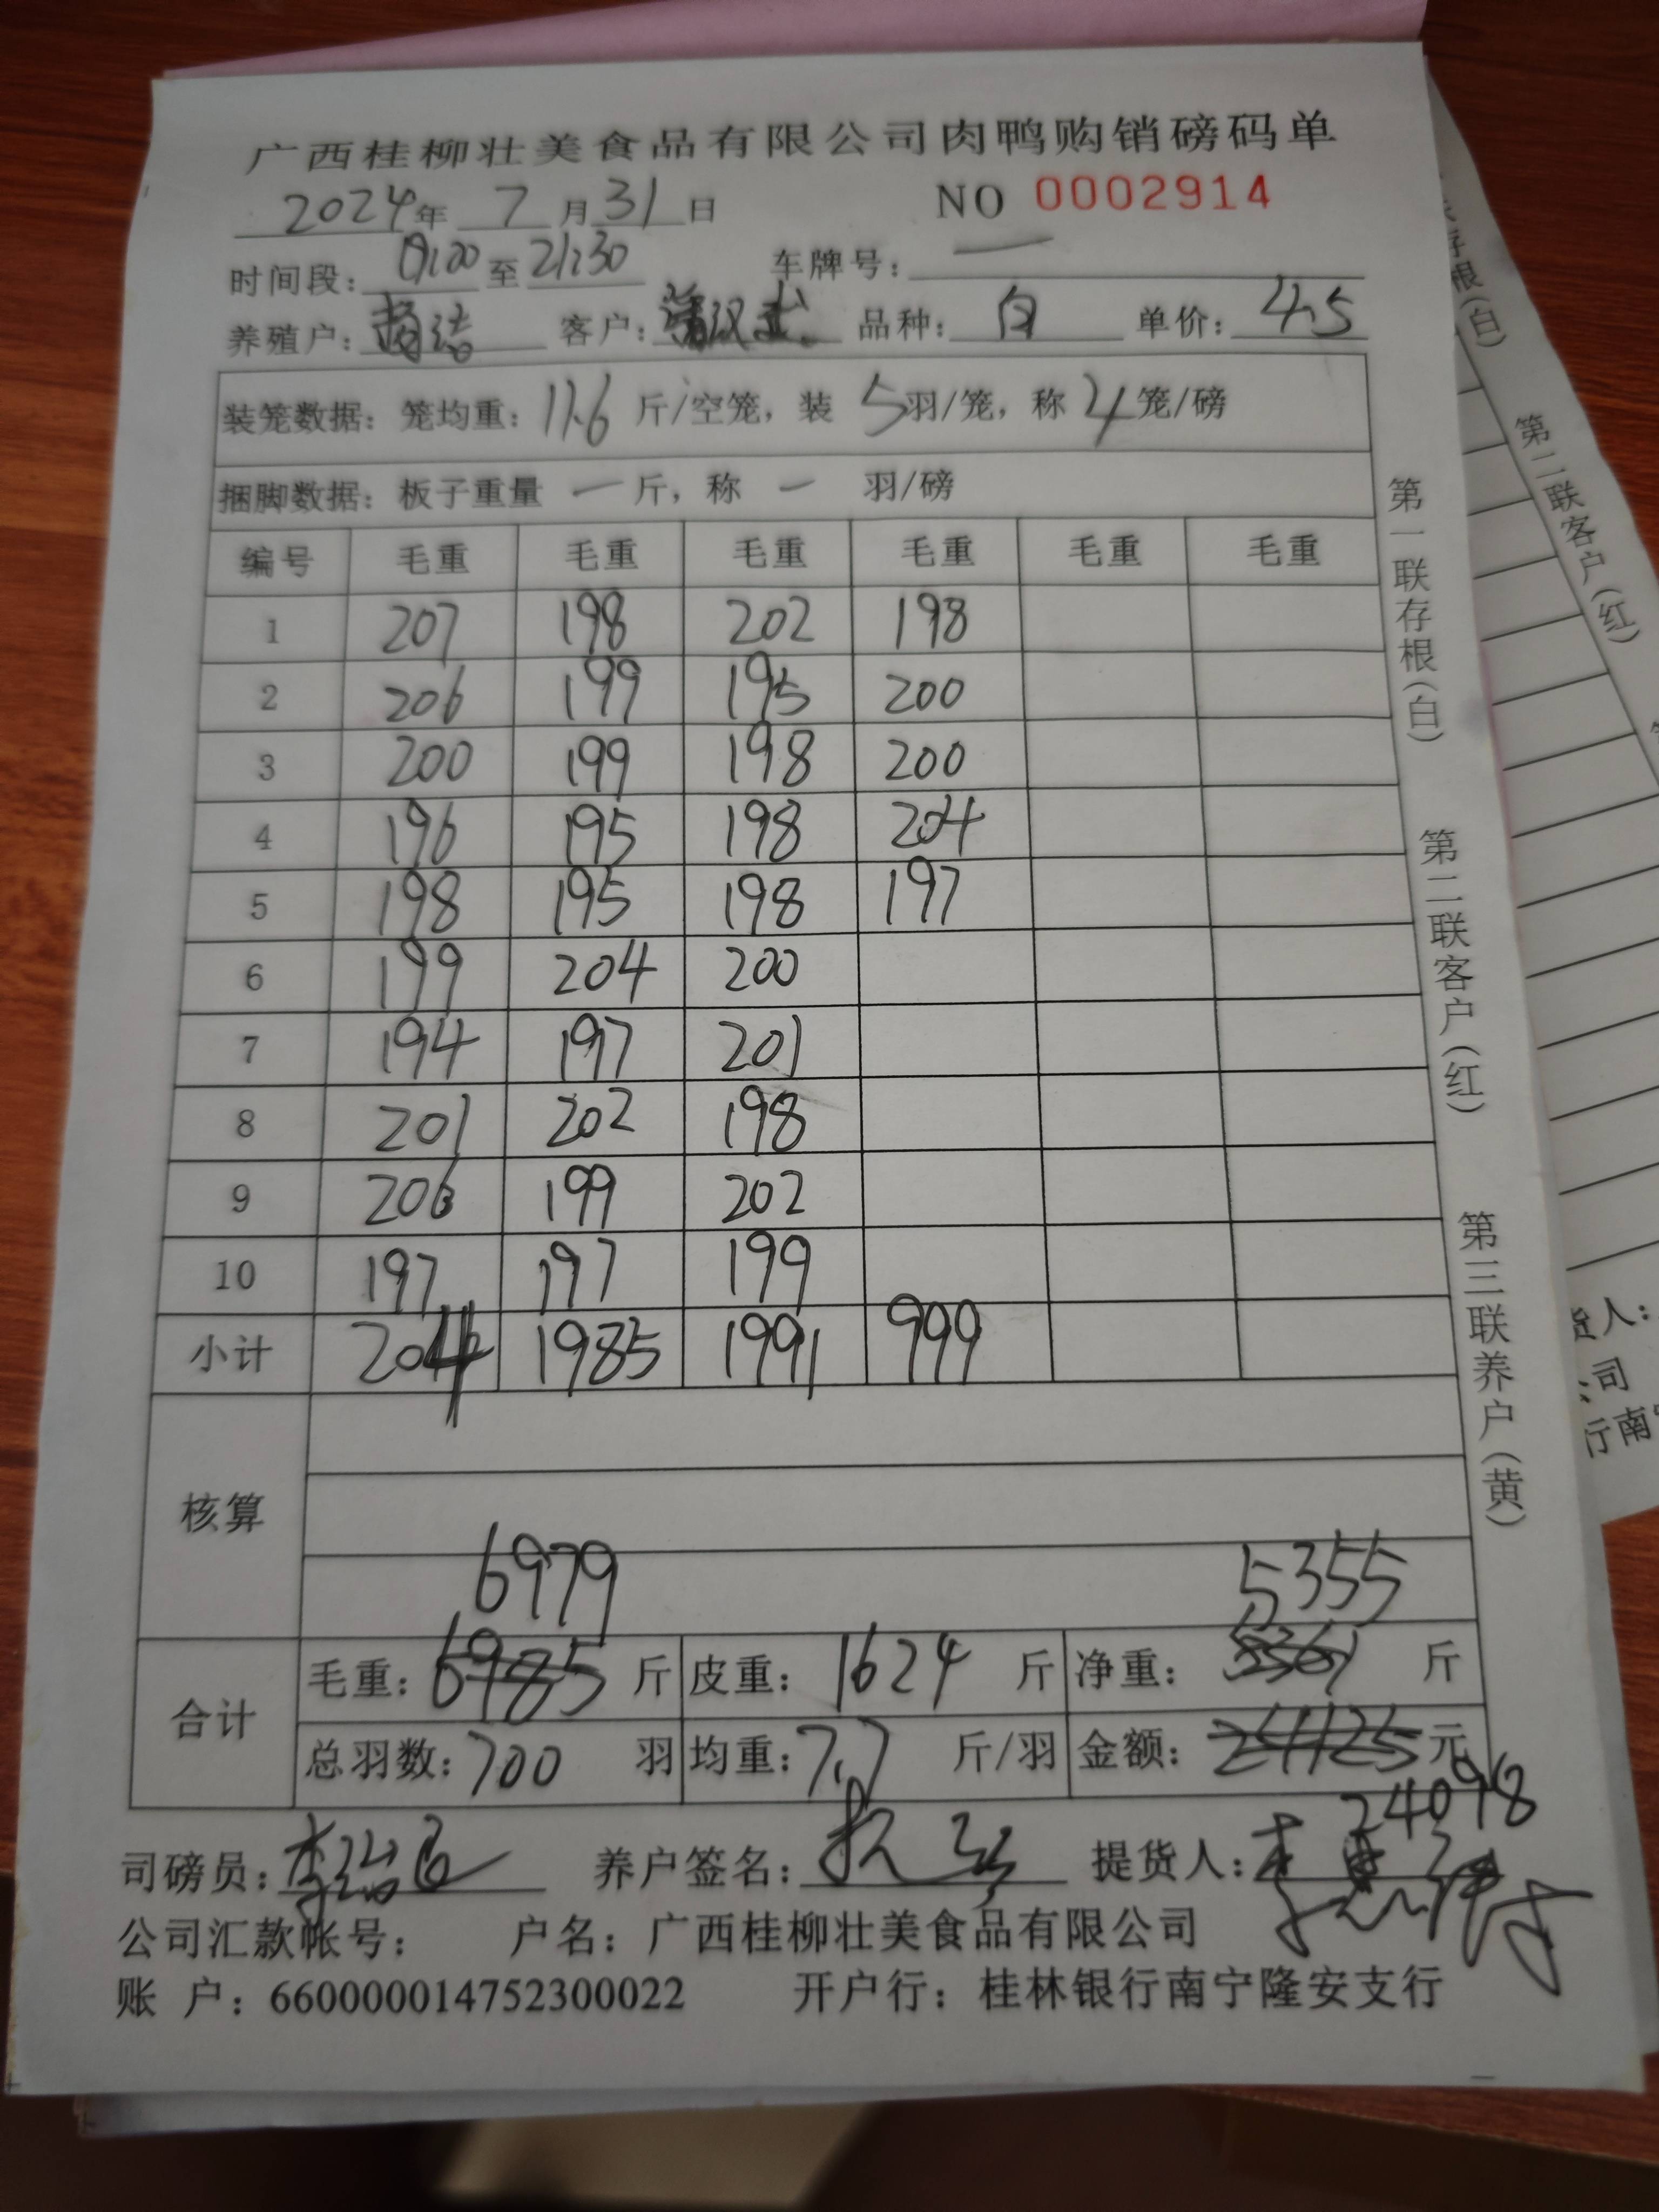 广西桂柳壮美食品有限公司肉鸭购销磅码单
2024年 7月31日 NO 0002914
时间段: 19:00 至 21:30 车牌号: —
养殖户: 客户: 品种: 白 单价: 4.5
装笼数据: 笼均重: 11.6 斤/空笼, 装 5羽/笼, 称 4笼/磅
捆脚数据: 板子重量 一 斤, 称 一 羽/磅
编号 毛重 毛重 毛重 毛重 毛重 毛重
1 207 198 202 198
2 206 199 195 200
3 200 199 198 200
4 196 195 198 204
5 198 195 198 197
6 199 204 200
7 194 197 201
8 201 202 198
9 206 199 202
10 197 197 199
小计 2004 1985 1991 999
核算
6979 5355
合计
毛重: 6985 斤 皮重: 1624 斤 净重: 5361 斤
总羽数: 700 羽 均重: 7.7 斤/羽 金额: 24125 元
24098
司磅员: 养户签名: 提货人:
公司汇款帐号: 户名: 广西桂柳壮美食品有限公司
账 户: 660000014752300022 开户行: 桂林银行南宁隆安支行
第一联存根(白) 第二联客户(红) 第三联养户(黄)
第二联客户(红)
根(白)
货人:
司
行南